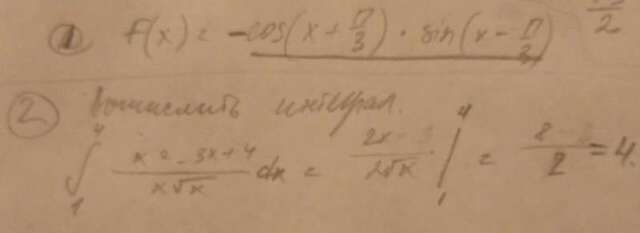 ① f(x) = -cos(x + π/3) · sin(x - π/3)
② Вычислить интеграл.
∫₁⁴ (x² - 3x + 4)/(x√x) dx = (2x - 3)/(2√x) |₁⁴ = 8/2 = 4.